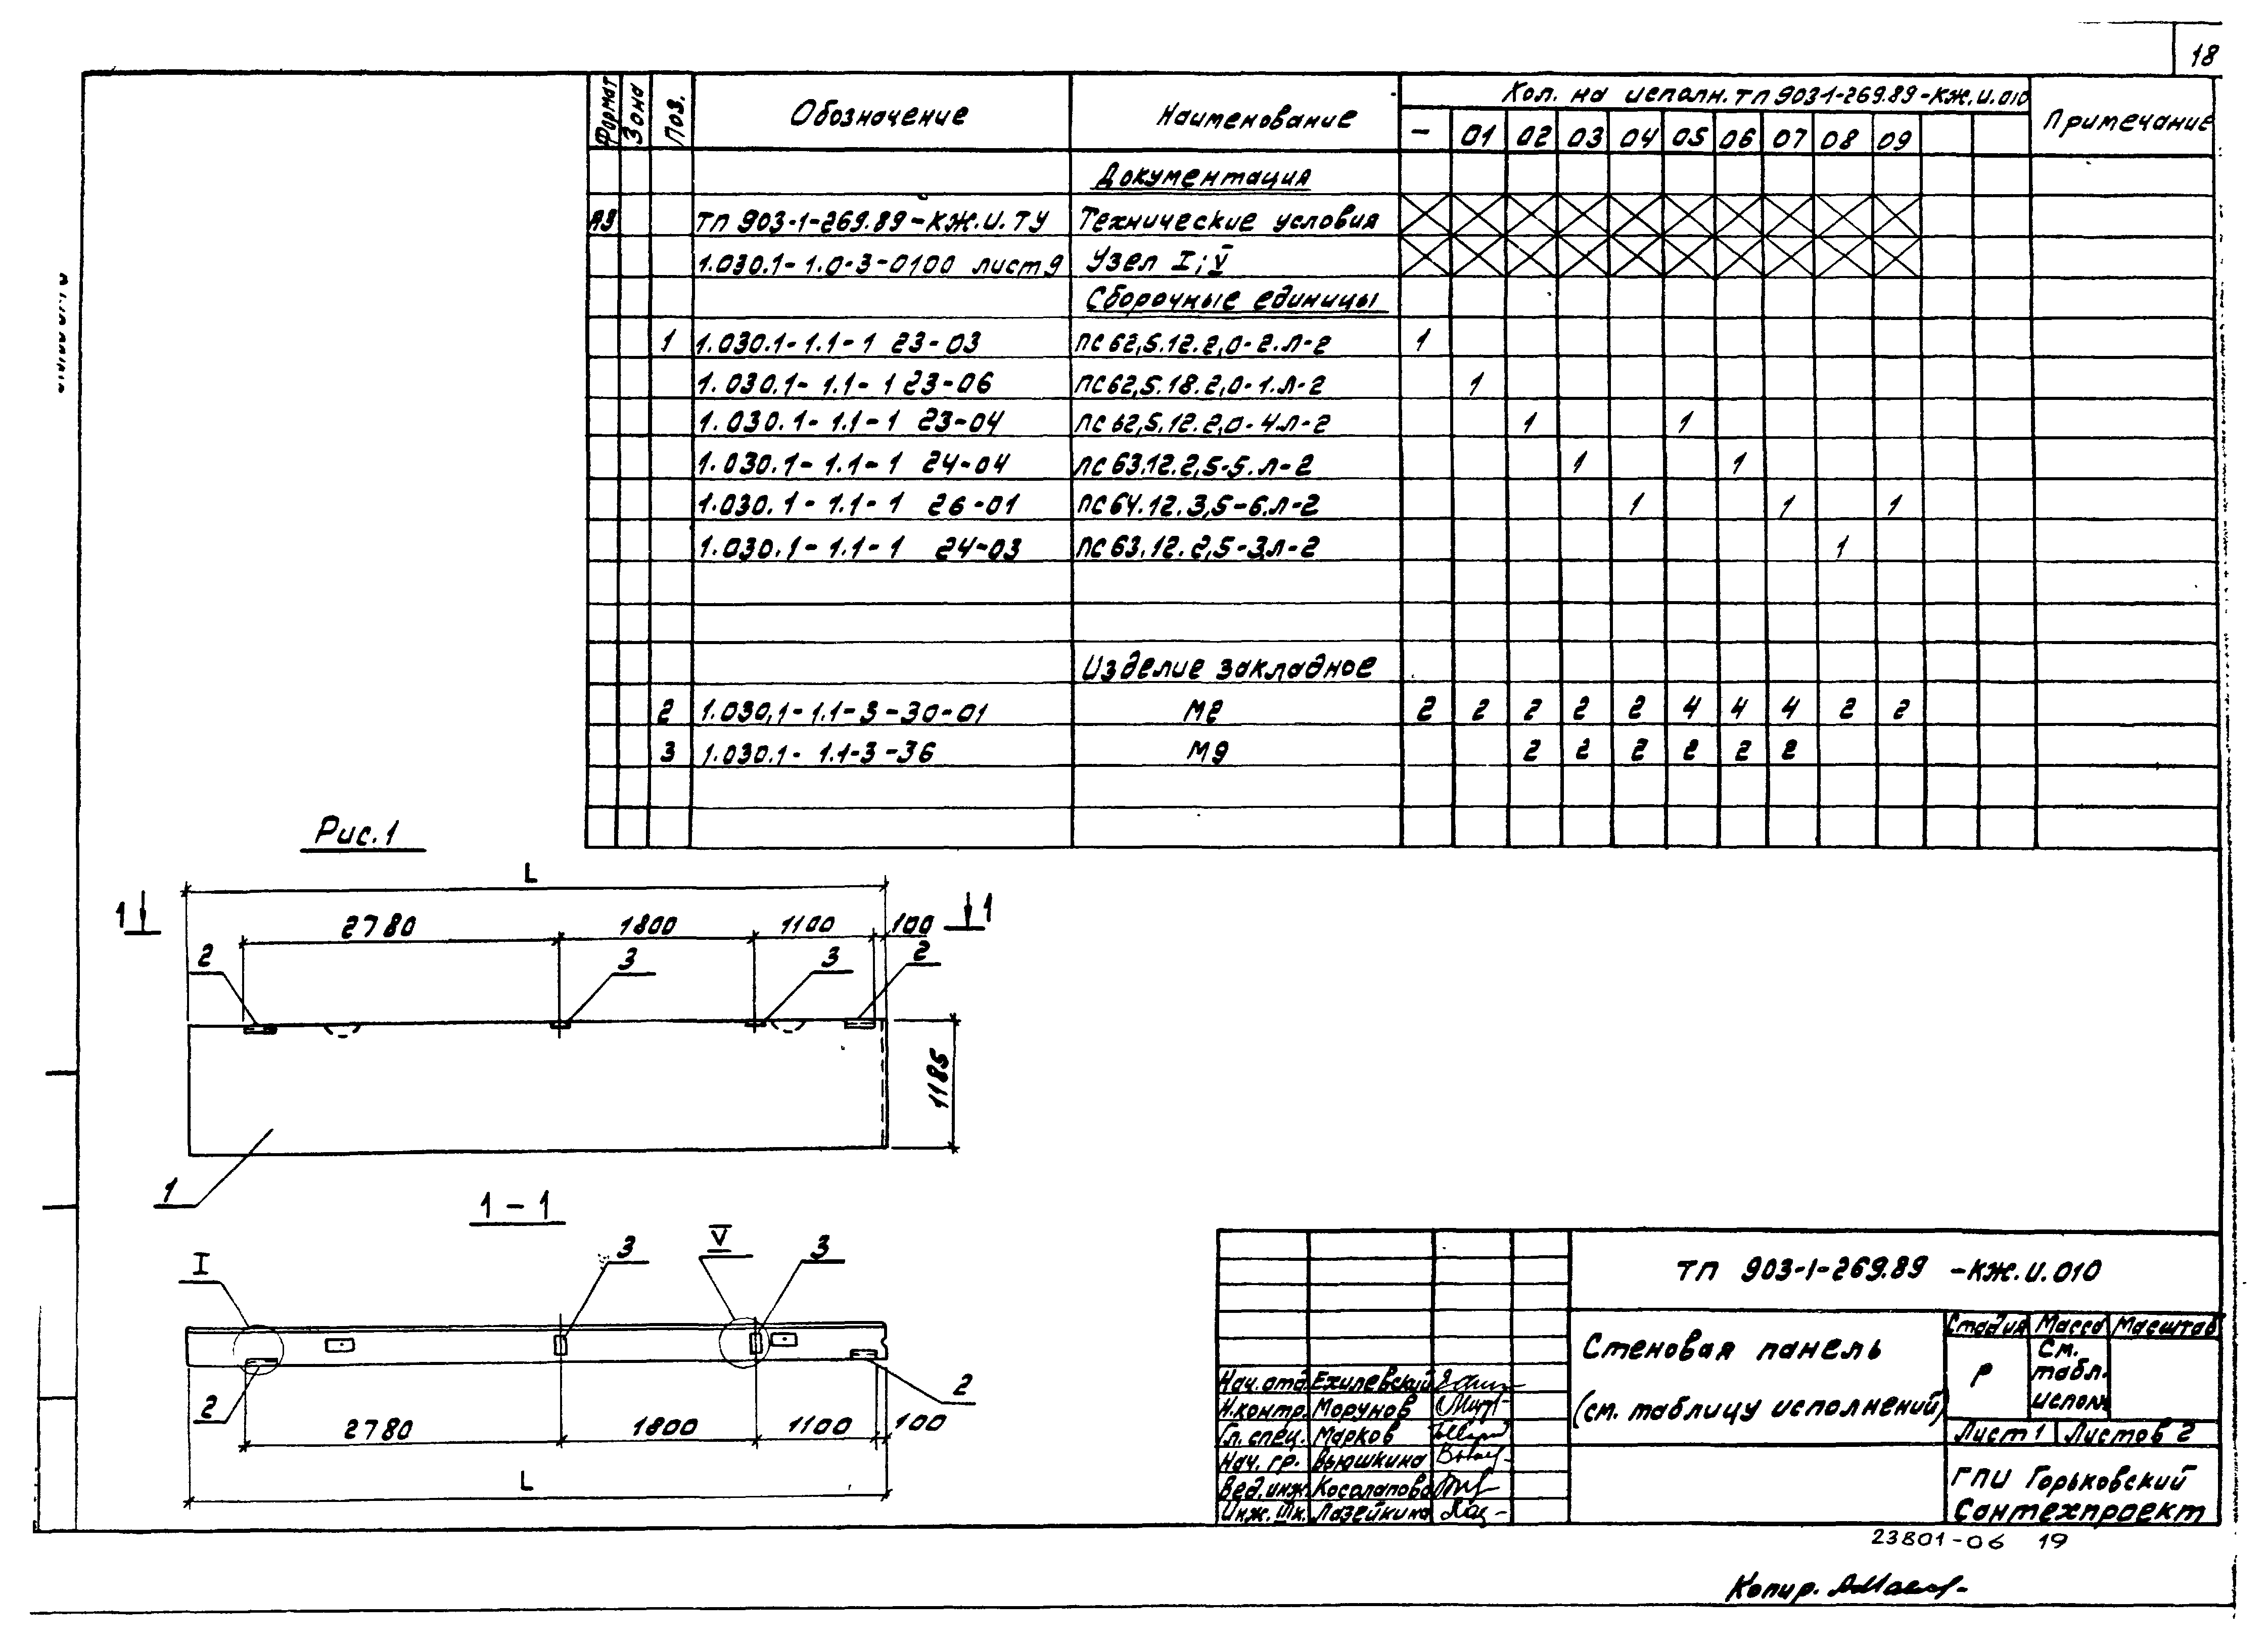 18
Формат Зона Поз. Обозначение Наименование Кол. на исполн. ТП 903-1-269.89-КЖ.И.010 Примечание
– 01 02 03 04 05 06 07 08 09
Документация
А3 ТП 903-1-269.89-КЖ.И.ТУ Технические условия
1.030.1-1.0-3-0100 лист 9 Узел I; V
Сборочные единицы
1 1.030.1-1.1-1 23-03 ПС 62,5.12.2,0-2.Л-2 1
1.030.1-1.1-1 23-06 ПС 62,5.18.2,0-1.Л-2 1
1.030.1-1.1-1 23-04 ПС 62,5.12.2,0-4.Л-2 1 1
1.030.1-1.1-1 24-04 ПС 63.12.2,5-5.Л-2 1 1
1.030.1-1.1-1 26-01 ПС 64.12.3,5-6.Л-2 1 1 1
1.030.1-1.1-1 24-03 ПС 63.12.2,5-3Л-2 1
Изделие закладное
2 1.030,1-1.1-3-30-01 М2 2 2 2 2 2 4 4 4 2 2
3 1.030.1-1.1-3-36 М9 2 2 2 2 2 2
Рис. 1
L
1 1
2780 1800 1100 100
2 3 3 2
1185
1
1-1
I 3 V 3
2 2
2780 1800 1100 100
L
ТП 903-1-269.89 -КЖ.И.010
Стеновая панель
(см. таблицу исполнений)
Стадия Масса Масштаб
Р См. табл. исполн
Лист 1 Листов 2
ГПИ Горьковский
Сантехпроект
Нач.отд. Ехилевский
Н.контр. Морунов
Гл. спец. Марков
Нач. гр. Вьюшкина
Вед.инж. Косолапова
Инж. IIк. Лазейкина
23801-06 19
Копир.